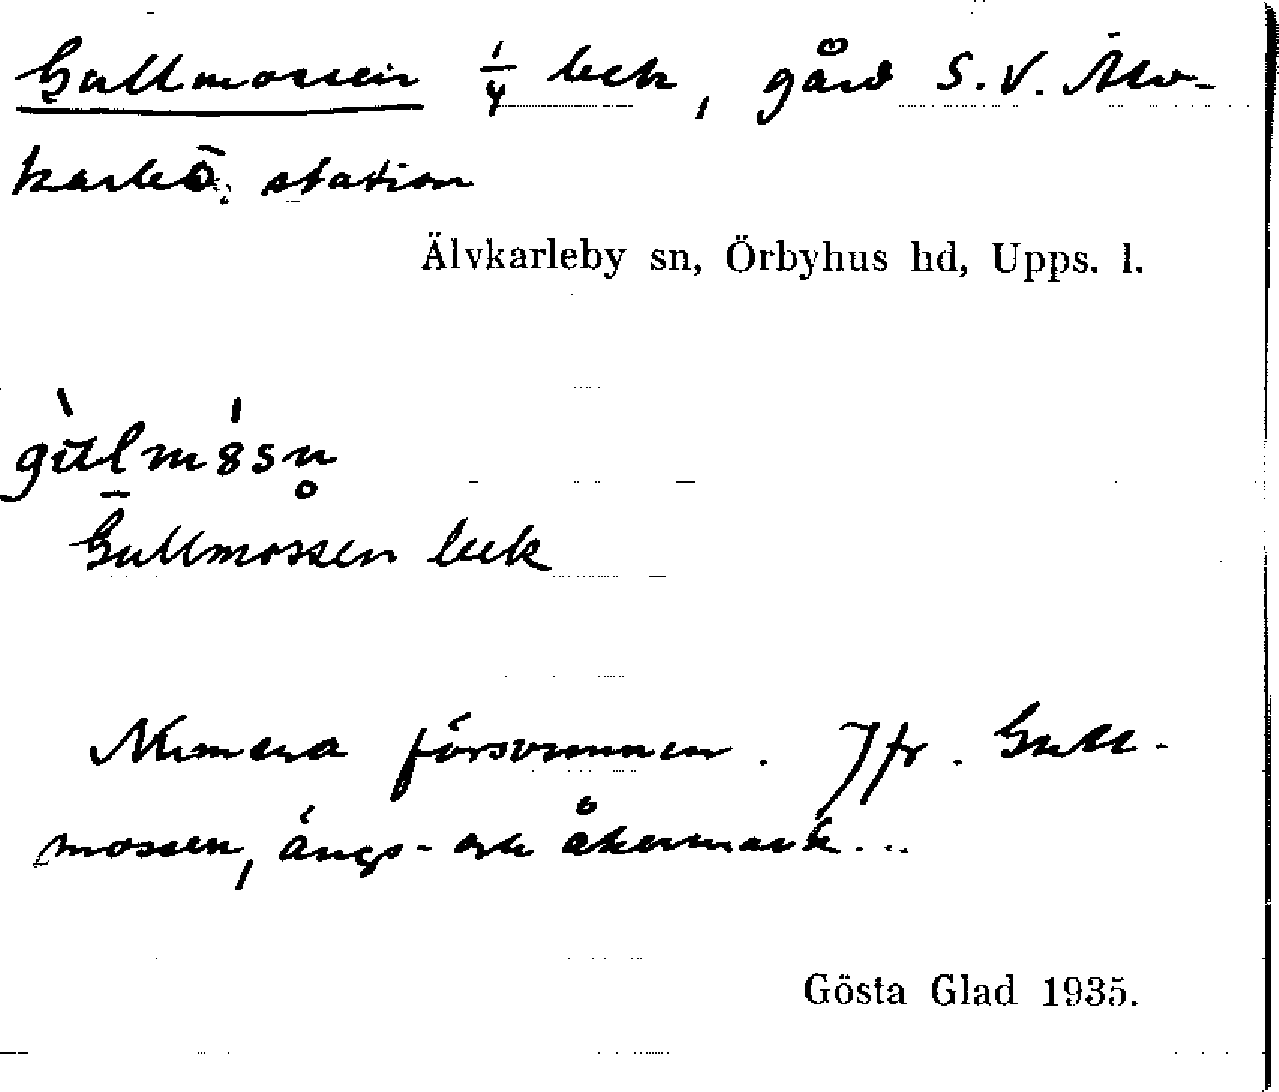 Gullmossen 1/4 bek, gård S.V. Älv-
karleö station
Älvkarleby sn, Örbyhus hd, Upps. l.
Gullmossen bek
Numera försvunnen. Jfr. Gull-
mossen, ängs- och åkermark...
Gösta Glad 1935.